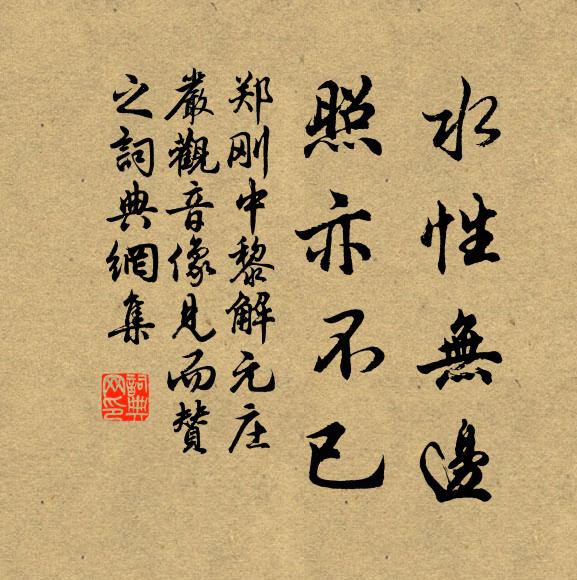 水性無邊
照亦不已
郑刚中黎解元庄
嚴觀音像見而赞
之詞典網集
詞典
网印